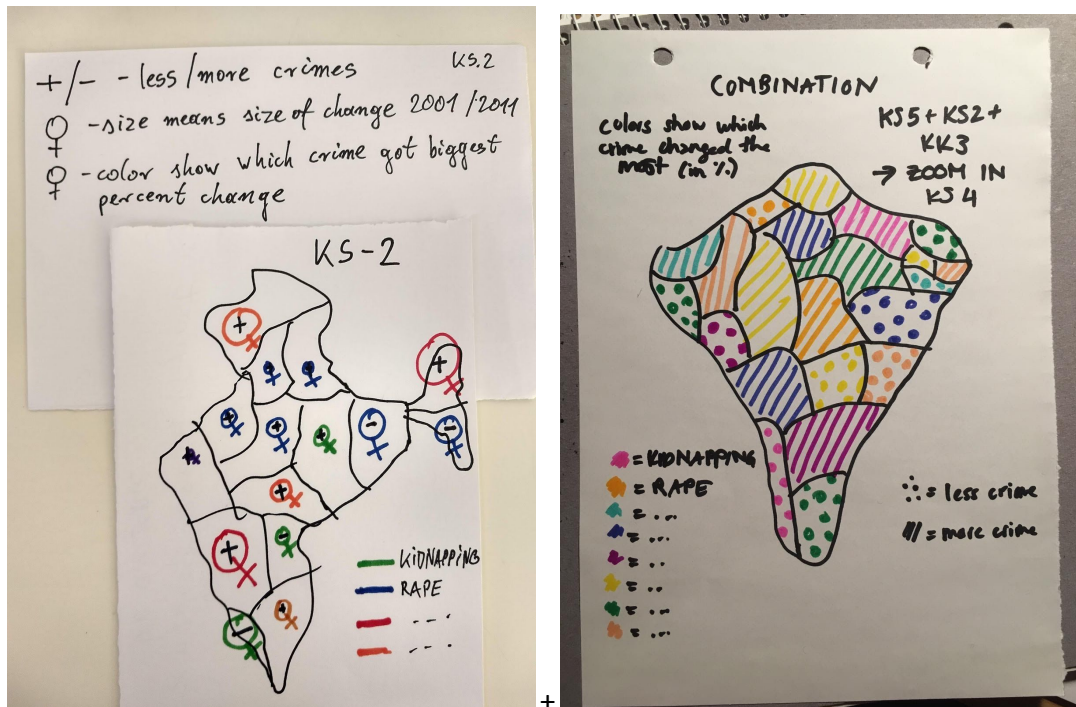 +/- - less/more crimes
KS.2
♀ -size means size of change 2001/2011
♀ -color show which crime got biggest
percent change
KS-2
+
+
+
+
+
+
+
-
-
+
+
+
-
-
+
KIDNAPPING
RAPE
---
---
+
COMBINATION
colors show which
crime changed the
most (in %)
KS5+KS2+
KK3
→ ZOOM IN
KS4
= KIDNAPPING
= RAPE
= ...
= ...
= ..
= ..
= ...
= ...
= less crime
/// = more crime